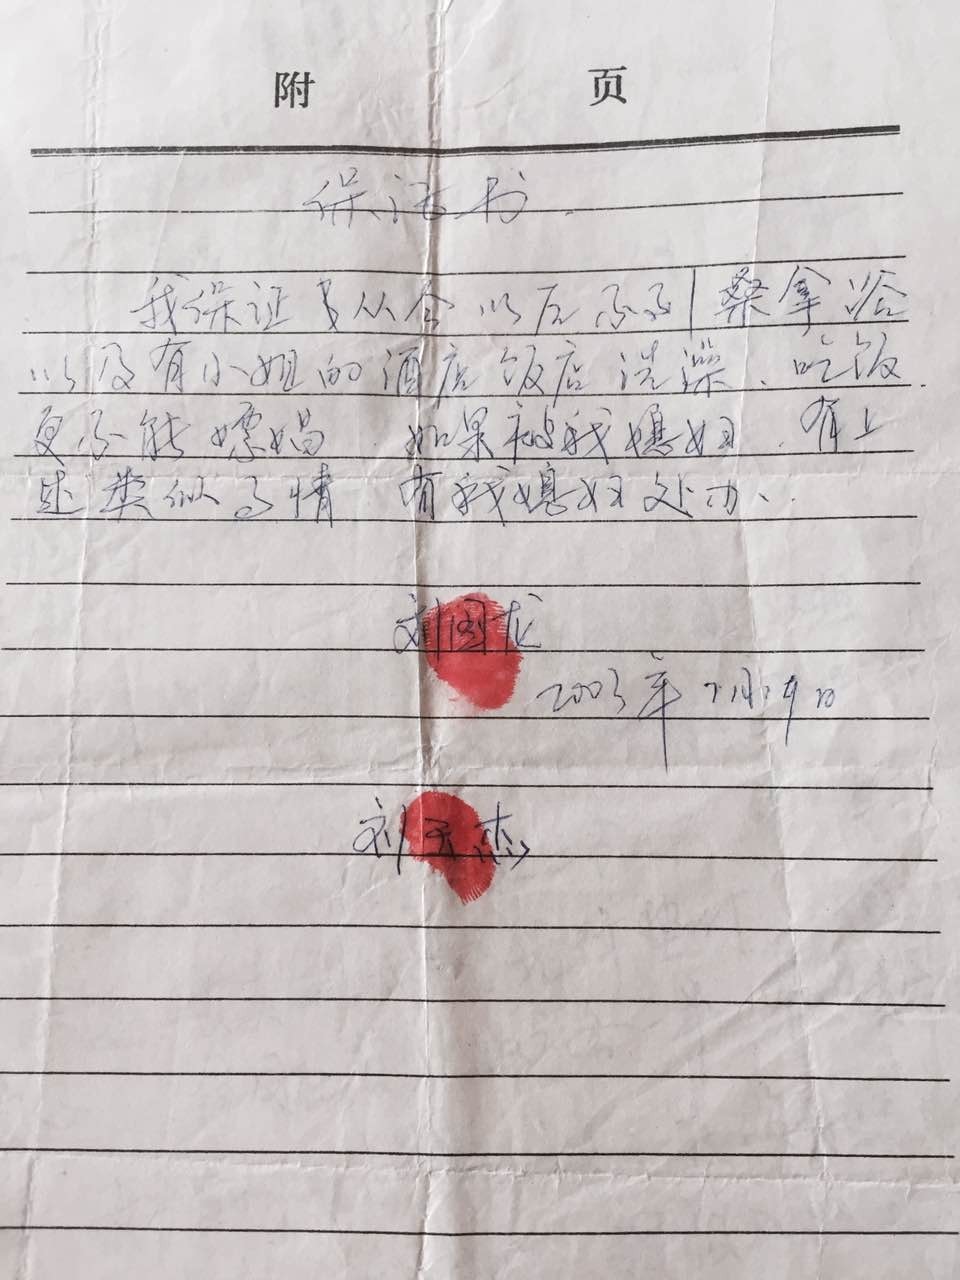 附 页
保证书
我保证 从今以后不 桑拿浴
以及有小姐的酒店饭店洗澡、吃饭
更不能嫖娼 如果被我媳妇 有上
述类似事情 有我媳妇处办、
刘国龙
2003年 月19日
刘 杰